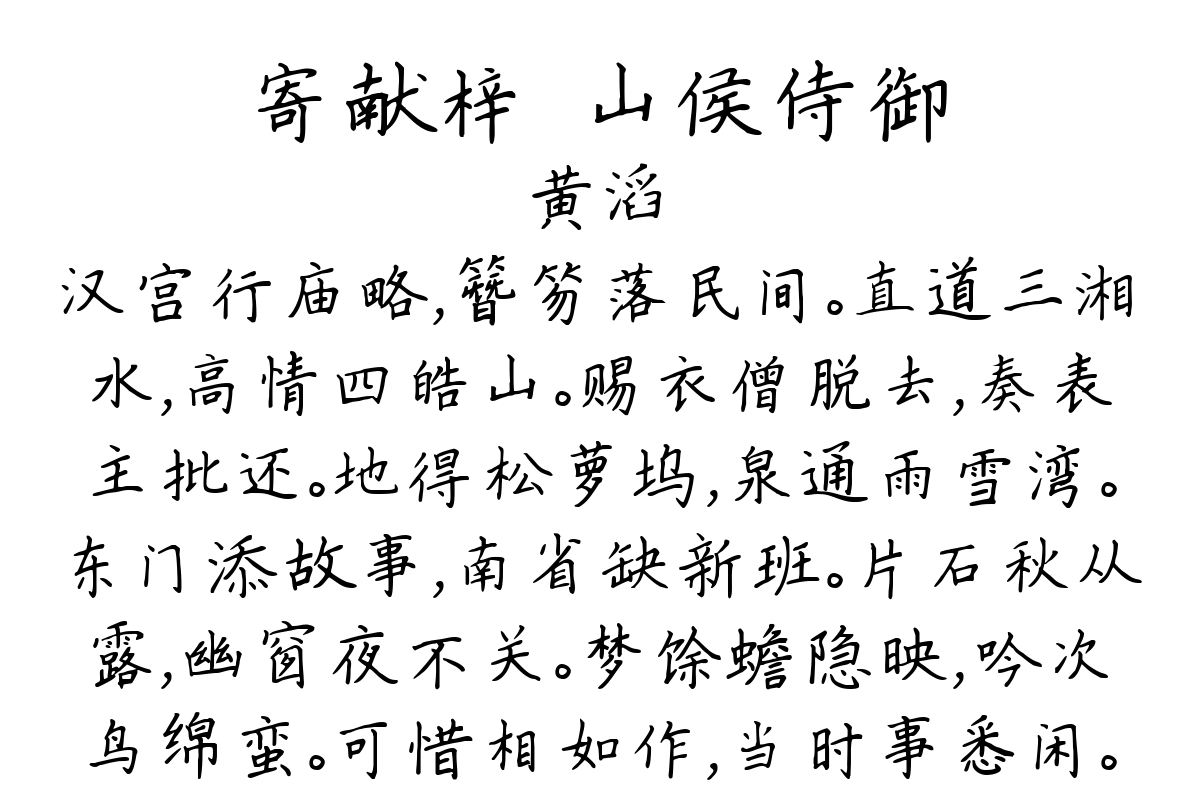 寄献梓 山侯侍御
黄滔
汉宫行庙略,簪笏落民间。直道三湘
水,高情四皓山。赐衣僧脱去,奏表
主批还。地得松萝坞,泉通雨雪湾。
东门添故事,南省缺新班。片石秋从
露,幽窗夜不关。梦馀蟾隐映,吟次
鸟绵蛮。可惜相如作,当时事悉闲。